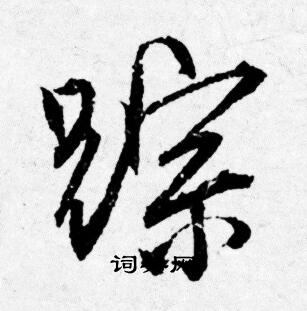 踪
词典网